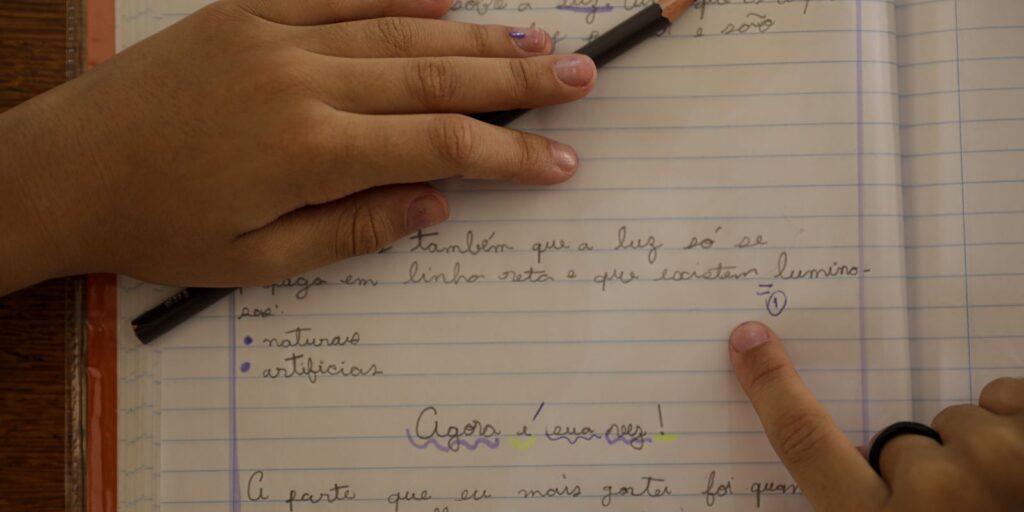 sobre a luz
e são
também que a luz só se
paga em linha reta e que existem lumino-
sos:
• naturais
• artificias
Agora é sua vez!
A parte que eu mais gostei foi quan